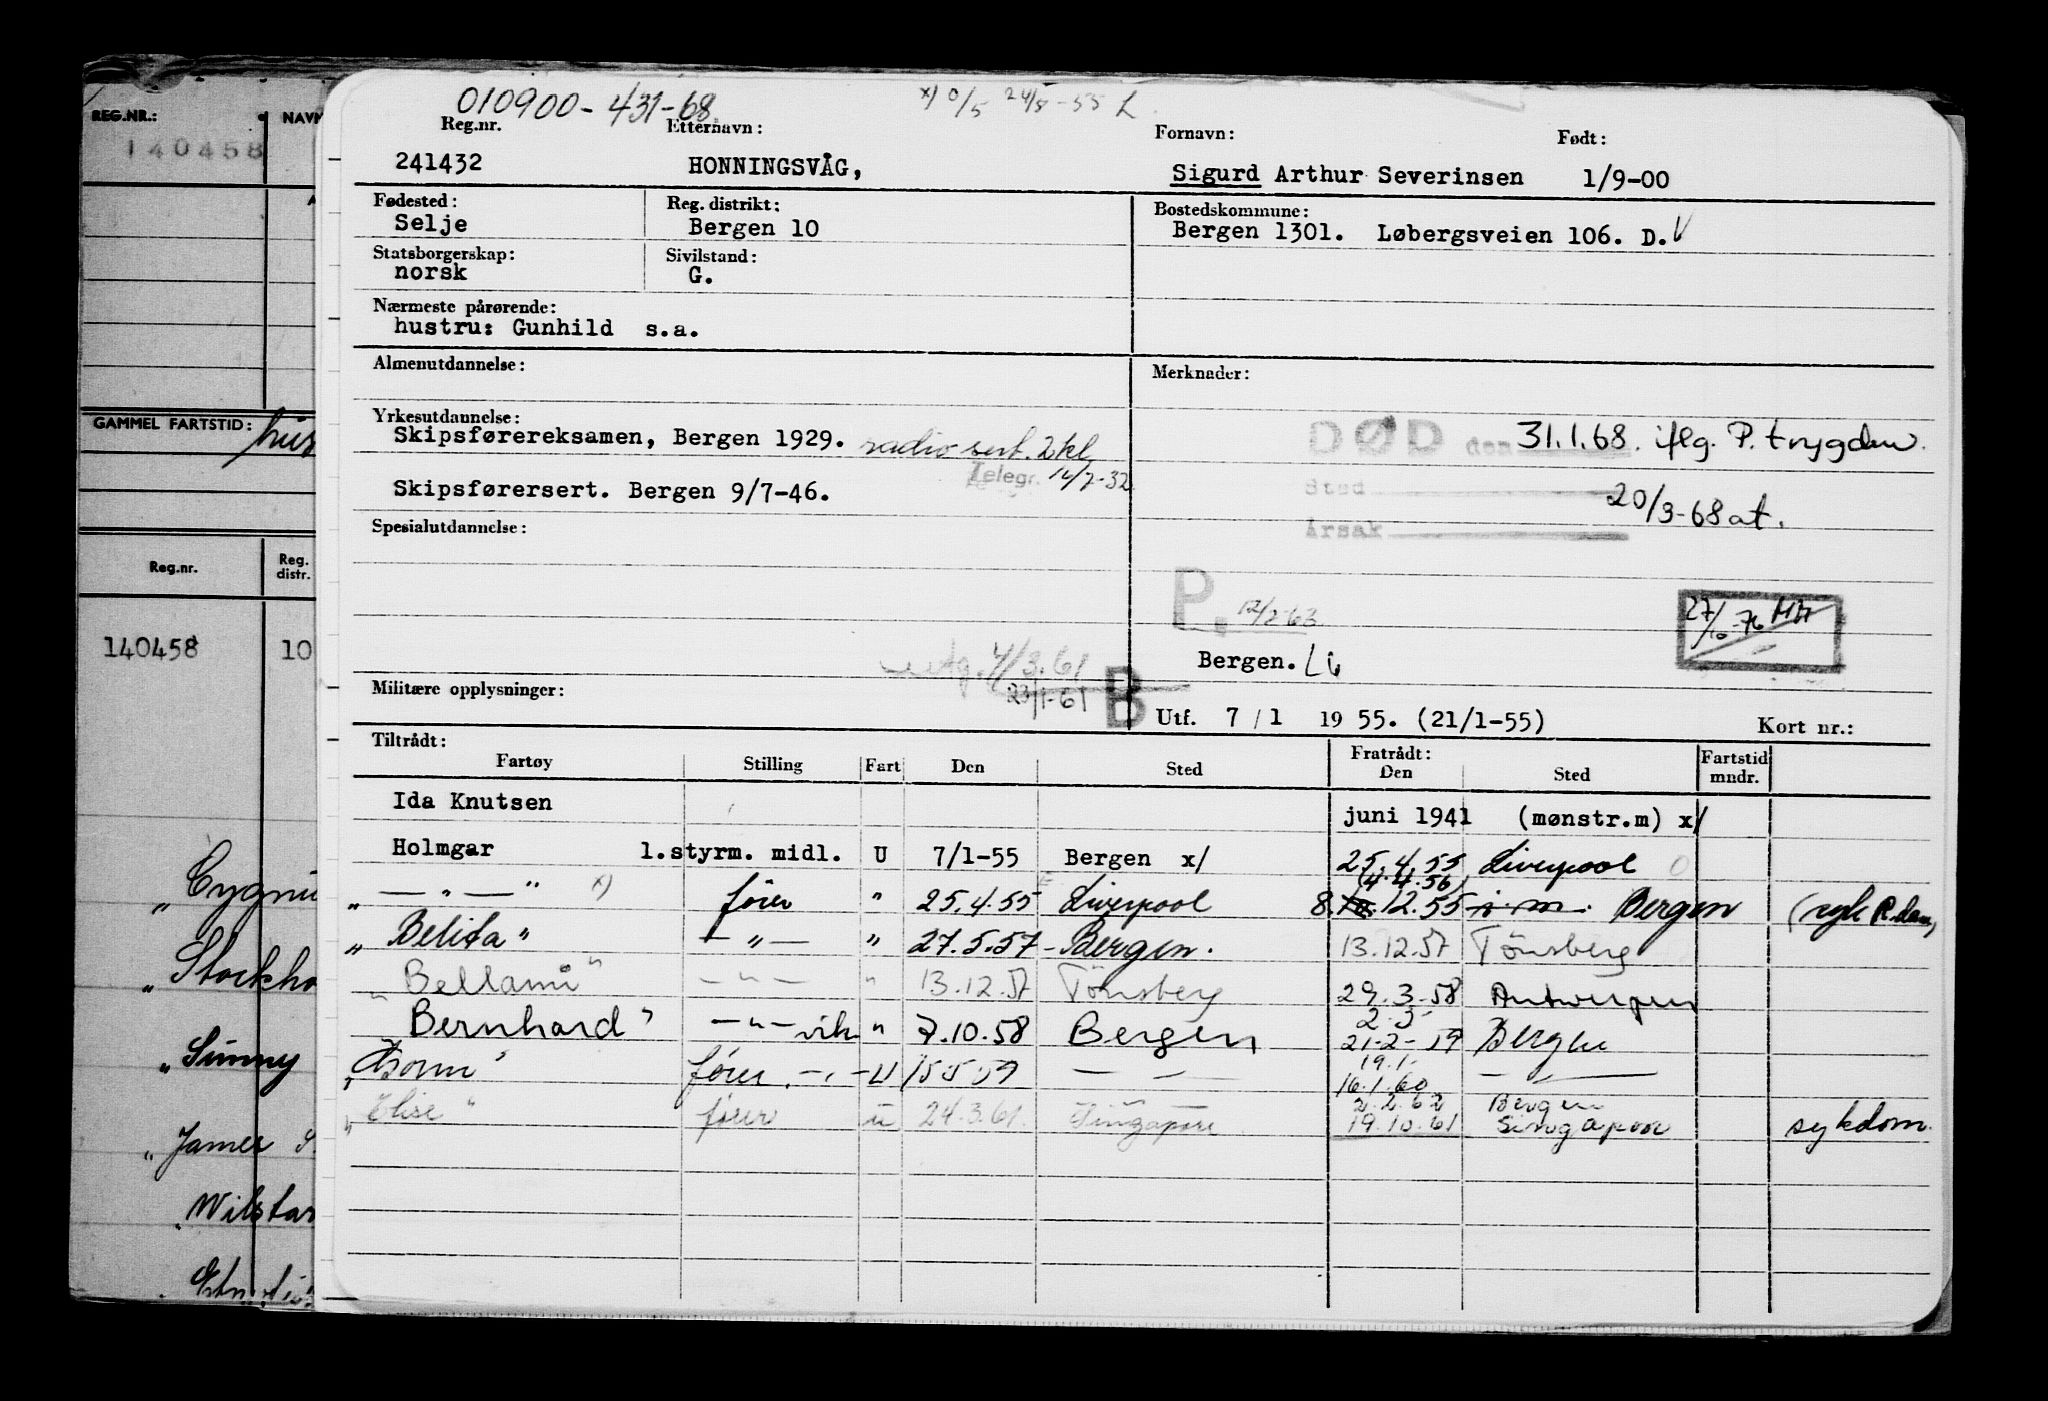 REG.NR.: NAVN
140458
GAMMEL FARTSTID:
Reg.nr. Reg. distr.
140458 10
" Sunny
" James
010900-431-68
x) 0/5 24/5-55 L
Reg.nr. Etternavn: Fornavn: Født:
241432 HONNINGSVÅG, Sigurd Arthur Severinsen 1/9-00
Fødested: Reg. distrikt: Bostedskommune:
Selje Bergen 10 Bergen 1301. Løbergsveien 106. D. V
Statsborgerskap: Sivilstand:
norsk G.
Nærmeste pårørende:
hustru: Gunhild s.a.
Almenutdannelse: Merknader:
Yrkesutdannelse:
Skipsførereksamen, Bergen 1929. radio sert. 2 kl
Telegr. 14/7-32
DØD den 31.1.68. iflg. P. trygden.
Skipsførersert. Bergen 9/7-46.
Sted 20/3-68 at.
Årsak
Spesialutdannelse:
P. 12/2-63
27/10-76
Bergen.
4/3.61
Militære opplysninger: 23/1-61 B
Utf. 7/1 1955. (21/1-55) Kort nr.:
Tiltrådt: Fratrådt:
Fartøy Stilling Fart Den Sted Den Sted Fartstid mndr.
Ida Knutsen juni 1941 (mønstr.m) x/
Holmgar 1.styrm. midl. U 7/1-55 Bergen x/ 25.4.55 Liverpool 0
(4.4.56)
" — " — " x) fører " 25.4.55 Liverpool 8.12.55 Bergen
" Belita " — " — " 27.5.57 - Bergen. 13.12.57 Tönsberg
" Bellami " — " — " 13.12.57 Tönsberg 29.3.58 Antwerpen
2.3
Bernhard " — " — vik " 7.10.58 Bergen 21-2-59 Bergen
19.1.
fører — " — U 15.5.59 — " — 16.1.60
2.2.62 Bergen
" Elise " fører u 24.3.61. Singapore 19.10.61 Singapore sykdom.